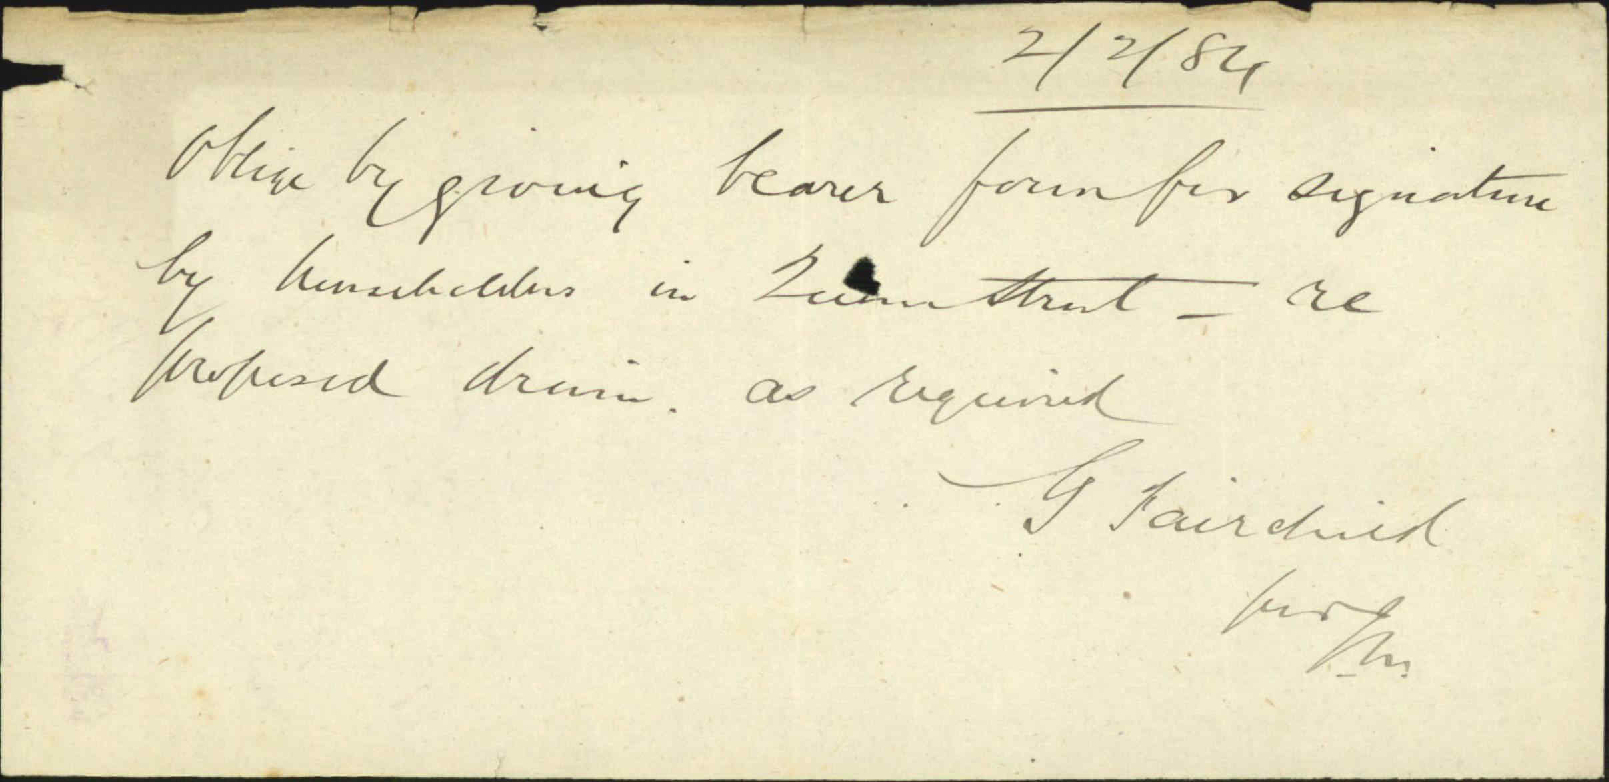 2/2/84
Oblige by giving bearer form for signature
by householders in Queen Street – re
proposed drain. as required
G Fairchild
per